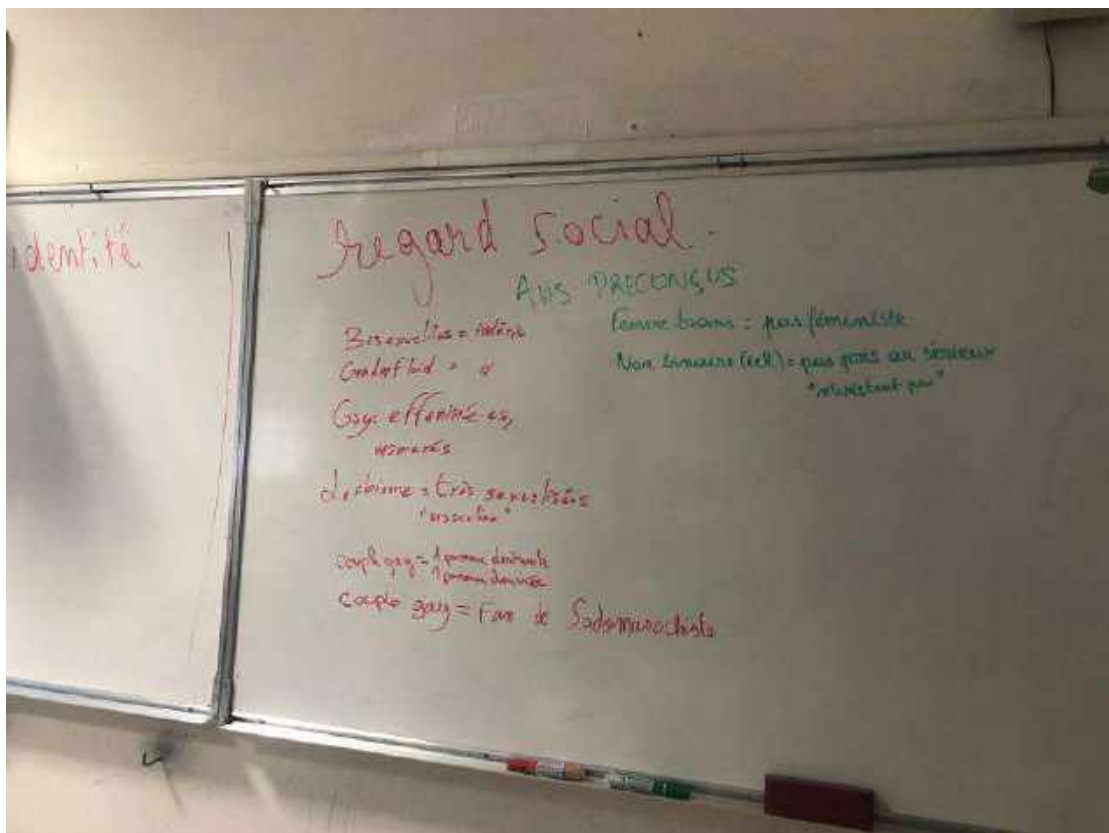 identité
regard social.
AVIS PRECONÇUS
Bisexuelles =
Genderfluid = "
Gay = efféminé es,
maniérés
Lesbienne = très sexualisées
"masculine"
couple gay = 1 personne dominante
1 personne dominée
couple gay = Fan de Sadomasochiste
Femme trans = pas féministe
Non binaire (iel) = pas pris au sérieux
"n'existent pas"